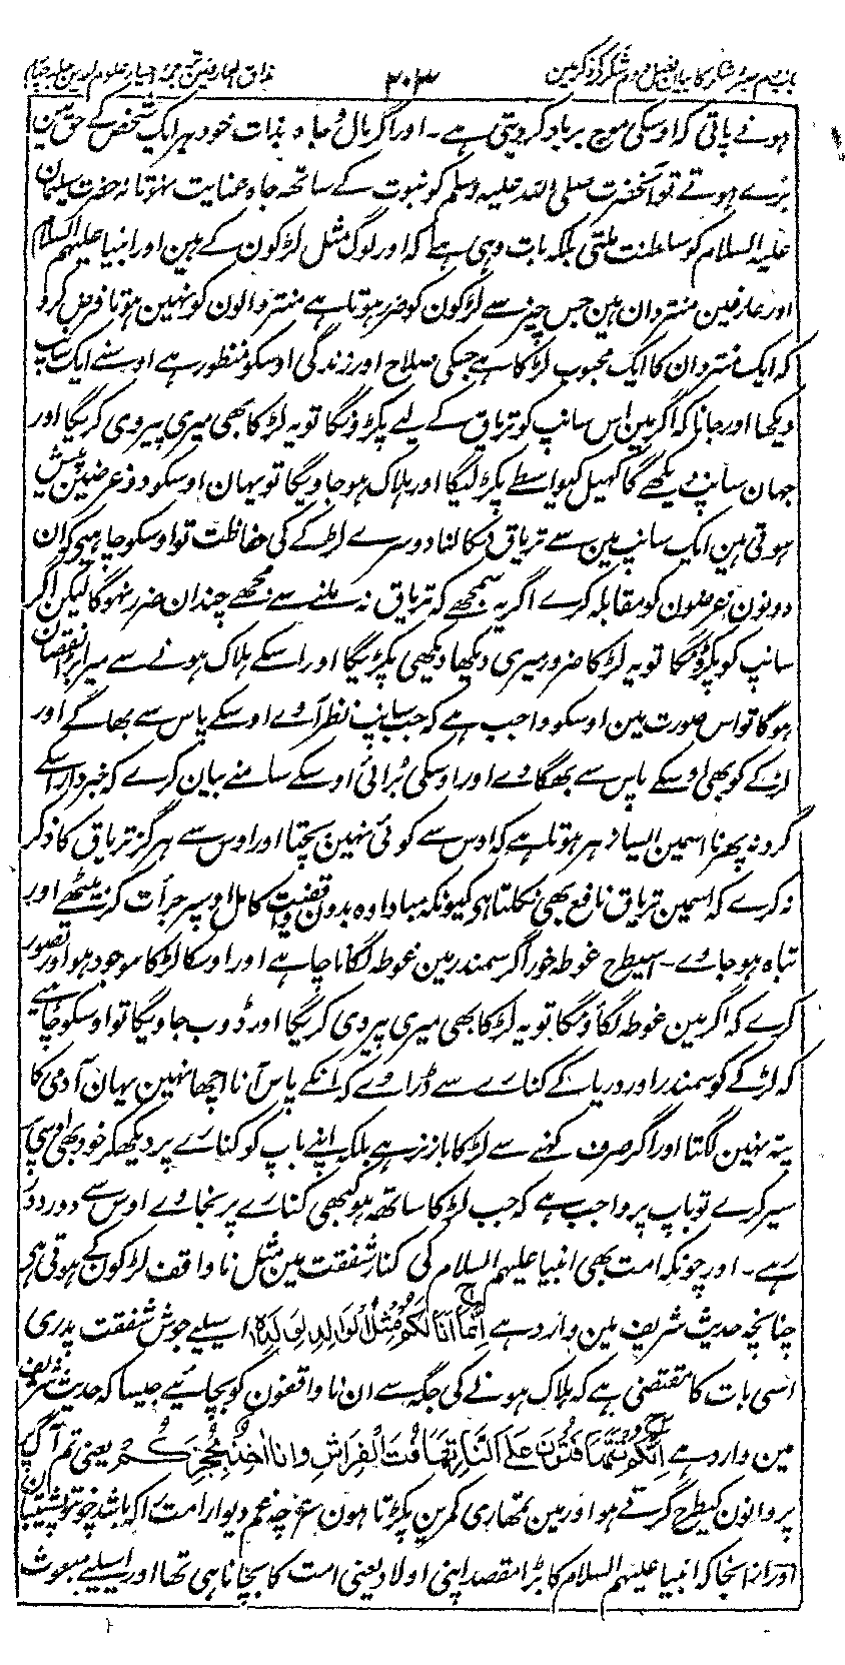 باب دوم صبر و شکر کا بیان فصل دوم شکر کے ذکر مین ۲۰۳ مذاق العارفین ترجمہ احیاء علوم الدین جلد چہارم
ہونے پاتی کہ اوسکی موج برباد کر دیتی ہے۔ اور اگر مال و جاہ بذات خود ہر ایک شخص کے حق مین
بُرے ہوتے تو آنحضرت صلی اللہ علیہ وسلم کو نبوت کے ساتھ جاہ عنایت نہوتا نہ حضرت سلیمان
علیہ السلام کو سلطنت ملتی بلکہ بات وہی ہے کہ اور لوگ مثل لڑکون کے ہین اور انبیا علیہم السلام
اور عارفین منتردان ہین جس چیز سے لڑکون کو ضرر ہوتا ہے منتر والون کو نہین ہوتا فرض کرو
کہ ایک منتردان کا ایک محبوب لڑکا ہے جسکی صلاح اور زندگی اوسکو منظور ہے اوسنے ایک سانپ
دیکھا اور جانا کہ اگر مین اس سانپ کو تریاق کے لیے پکڑونگا تو یہ لڑکا بھی میری پیروی کریگا اور
جہان سانپ دیکھے گا کھیل کیواسطے پکڑ لیگا اور ہلاک ہو جاویگا تو یہان اوسکو دو غرضین پیش
ہوتی ہین ایک سانپ مین سے تریاق نکالنا دوسرے لڑکے کی حفاظت تو اوسکو چاہیے کہ ان
دونون غرضون کو مقابلہ کرے اگر یہ سمجھے کہ تریاق نہ ملنے سے مجھے چندان ضرر نہوگا لیکن اگر
سانپ کو پکڑونگا تو یہ لڑکا ضرور میری دیکھا دیکھی پکڑیگا اور اسکے ہلاک ہونے سے میرا بڑا نقصان
ہوگا تو اس صورت مین اوسکو واجب ہے کہ جب سانپ نظر آوے اوسکے پاس سے بھاگے اور
لڑکے کو بھی اوسکے پاس سے بھگاوے اور اوسکی بُرائی اوسکے سامنے بیان کرے کہ خبردار اسکے
گرد نہ پھرنا اسمین ایسا زہر ہوتا ہے کہ اوس سے کوئی نہین بچتا اور اوس سے ہرگز تریاق کا ذکر
نہ کرے کہ اسمین تریاق نافع بھی نکلتا ہو کیونکہ مبادا وہ بدون واقفیت کامل اوسپر جرأت کر بیٹھے اور
تباہ ہو جاوے۔ اسیطرح غوطہ خور اگر سمندر مین غوطہ لگانا چاہے اور اوسکا لڑکا موجود ہو اور تصور
کرے کہ اگر مین غوطہ لگاؤنگا تو یہ لڑکا بھی میری پیروی کریگا اور ڈوب جاویگا تو اوسکو چاہیے
کہ لڑکے کو سمندر اور دریا کے کنارے سے ڈراوے کہ انکے پاس آنا اچھا نہین یہان آدمی کا
پتہ نہین لگتا اور اگر صرف کہنے سے لڑکا باز نہ رہے بلکہ اپنے باپ کو کنارے پر دیکھکر خود بھی اوسی جا
سیر کرے تو باپ پر واجب ہے کہ جب لڑکا ساتھ ہو کبھی کنارے پر نجاوے اوس سے دور دور
رہے۔ اور چونکہ امت بھی انبیا علیہم السلام کی کنار شفقت مین مثل ناواقف لڑکون کے ہوتی ہی
چنانچہ حدیث شریف مین وارد ہے اِنَّمَا اَنَا لَکُمْ مِثْلُ الْوَالِدِ لِوَلَدِہٖ اسلیے جوش شفقت پدری
اسی بات کا مقتضی ہے کہ ہلاک ہونے کی جگہ سے ان ناواقفون کو بچائیے جیسا کہ حدیث شریف
مین وارد ہے اِنَّکُمْ تَتَهَافَتُوْنَ عَلَی النَّارِ تَهَافُتَ الْفِرَاشِ وَاَنَا اٰخُذُ بِحُجَزِکُمْ یعنی تم آگ پر
پروانون کیطرح گرتے ہو اور مین تمہاری کمرین پکڑتا ہون ع چہ غم دیوار امت را کہ باشد چون تو پشتیبان
اور ازانجا کہ انبیا علیہم السلام کا بڑا مقصد اپنی اولاد یعنی امت کا بچانا ہی تھا اور اسلیے مبعوث